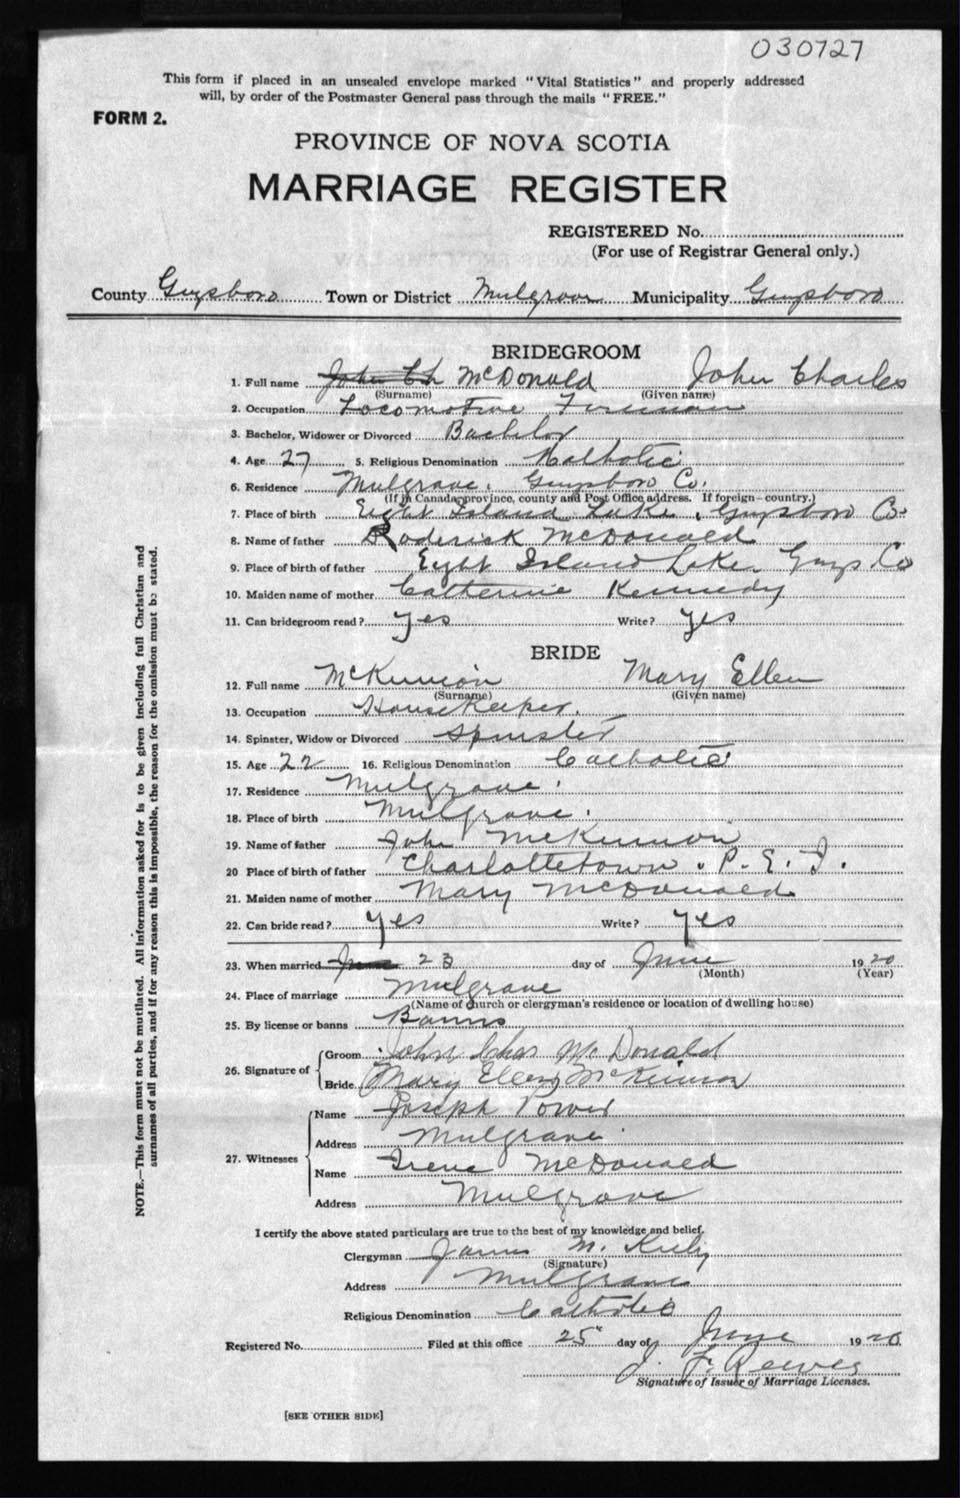 030727
This form if placed in an unsealed envelope marked "Vital Statistics" and properly addressed
will, by order of the Postmaster General pass through the mails "FREE."
FORM 2.
PROVINCE OF NOVA SCOTIA
MARRIAGE REGISTER
REGISTERED No.
(For use of Registrar General only.)
County Guysboro Town or District Mulgrave Municipality Guysboro
BRIDEGROOM
1. Full name John Ch McDonald John Charles
(Surname) (Given name)
2. Occupation Locomotive Fireman
3. Bachelor, Widower or Divorced Bachelor
4. Age 27 5. Religious Denomination Catholic
6. Residence Mulgrave. Guysboro Co.
(If in Canada, province, county and Post Office address. If foreign - country.)
7. Place of birth Eight Island Lake, Guysboro Co.
8. Name of father Roderick McDonald
9. Place of birth of father Eight Island Lake Guys. Co
10. Maiden name of mother Catherine Kennedy
11. Can bridegroom read? yes Write? yes
BRIDE
12. Full name McKinnon Mary Ellen
(Surname) (Given name)
13. Occupation Housekeeper.
14. Spinster, Widow or Divorced Spinster
15. Age 22 16. Religious Denomination Catholic
17. Residence Mulgrave.
18. Place of birth Mulgrave.
19. Name of father John McKinnon
20 Place of birth of father Charlottetown. P. E. I.
21. Maiden name of mother Mary McDonald
22. Can bride read? yes Write? yes
23. When married June 23 day of June 1920
(Month) (Year)
24. Place of marriage Mulgrave
(Name of church or clergyman's residence or location of dwelling house)
25. By license or banns Banns
26. Signature of Groom John Chas McDonald
Bride Mary Ellen McKinnon
27. Witnesses Name Joseph Power
Address Mulgrave
Name Irene McDonald
Address Mulgrave
I certify the above stated particulars are true to the best of my knowledge and belief.
Clergyman James M. Kiely
(Signature)
Address Mulgrave
Religious Denomination Catholic
Registered No. Filed at this office 25 day of June 1920
J. F. Reeves
Signature of Issuer of Marriage Licenses.
[SEE OTHER SIDE]
NOTE.—This form must not be mutilated. All information asked for is to be given including full Christian and
surnames of all parties, and if for any reason this is impossible, the reason for the omission must be stated.